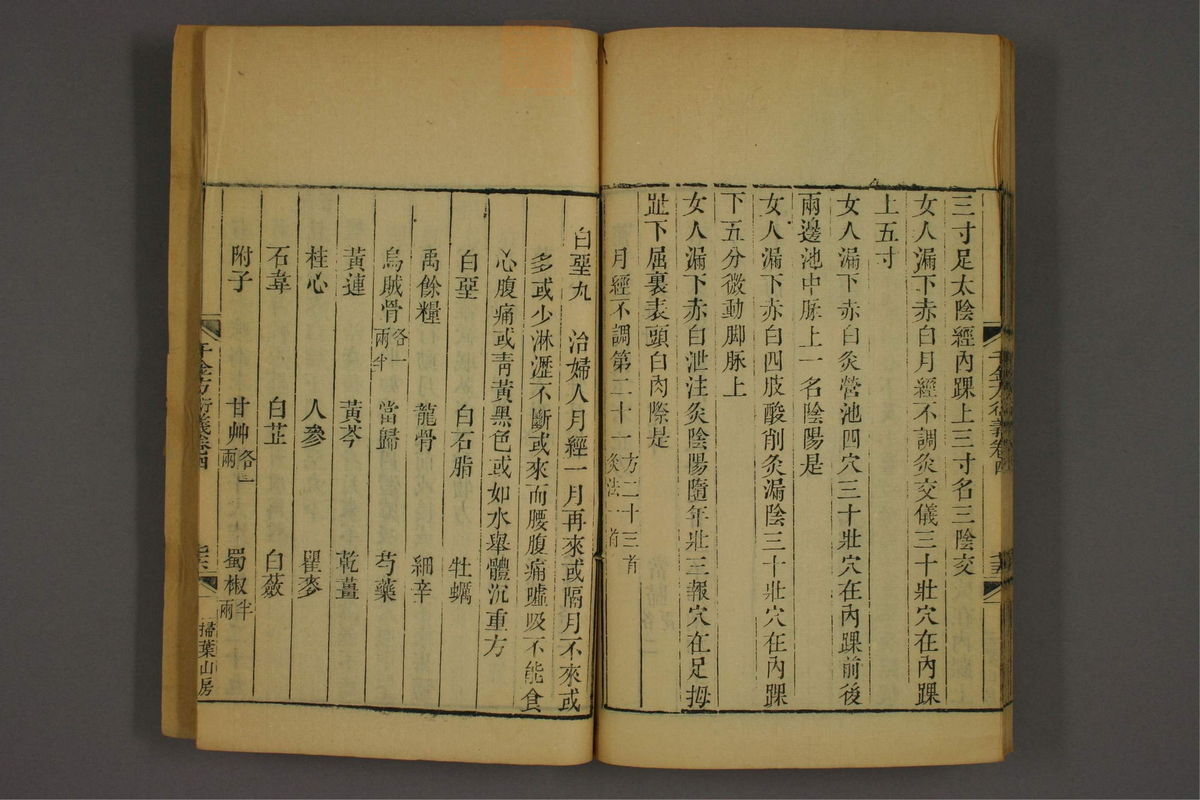 三寸足太陰經內踝上三寸名三陰交
女人漏下赤白月經不調灸交儀三十壯穴在內踝
上五寸
女人漏下赤白灸營池四穴三十壯穴在內踝前後
兩邊池中脉上一名陰陽是
女人漏下赤白四肢酸削灸漏陰三十壯穴在內踝
下五分微動脚脉上
女人漏下赤白泄注灸陰陽隨年壯三報穴在足拇
趾下屈裏表頭白肉際是
月經不調第二十一方二十三首灸法一首
白堊丸 治婦人月經一月再來或隔月不來或
多或少淋瀝不斷或來而腰腹痛噓吸不能食
心腹痛或靑黃黑色或如水舉體沉重方
白堊 白石脂 牡蠣
禹餘糧 龍骨 細辛
烏賊骨各一兩半 當歸 芍藥
黃連 黃芩 乾薑
桂心 人參 瞿麥
石韋 白芷 白蘞
附子 甘艸各一兩 蜀椒半兩
千金方衍義卷四
掃葉山房